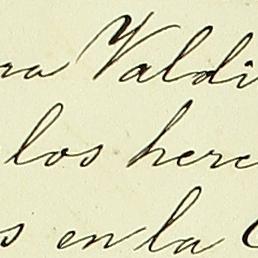 ra Valdi
los here
s en la